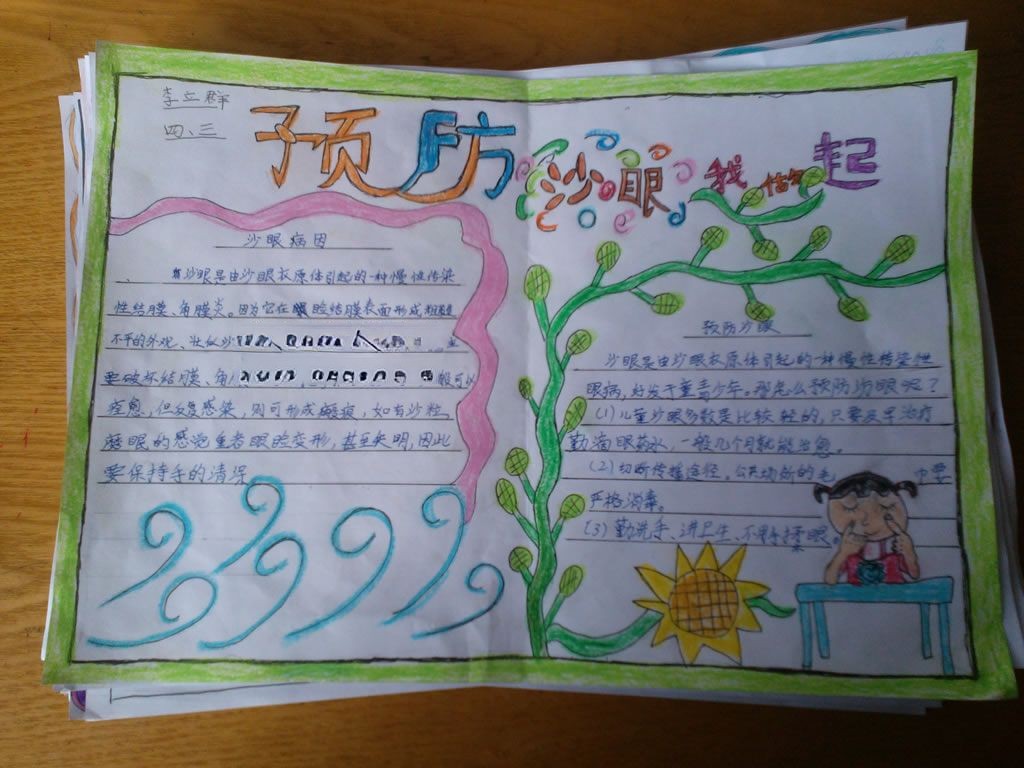 李立群
四、三
预防沙眼我做起
沙眼病因
沙眼是由沙眼衣原体引起的一种慢性传染
性结膜、角膜炎。因为它在睑结膜表面形成粗糙
不平的外观、沙
要破坏结膜、角 可以
痊愈,但反复感染,则可形成瘢痕,如有沙粒
磨眼的感觉重者眼睑变形,甚至失明,因此
要保持手的清洁
预防沙眼
沙眼是由沙眼衣原体引起的一种慢性传染性
眼病,好发于童青少年。那怎么预防沙眼呢?
(1)儿童沙眼多数是比较轻的,只要及早治疗
勤滴眼药水,一般几个月就能治愈。
(2)切断传播途径。公共场所的毛 中要
严格消毒。
(3)勤洗手、讲卫生、不用手揉眼。